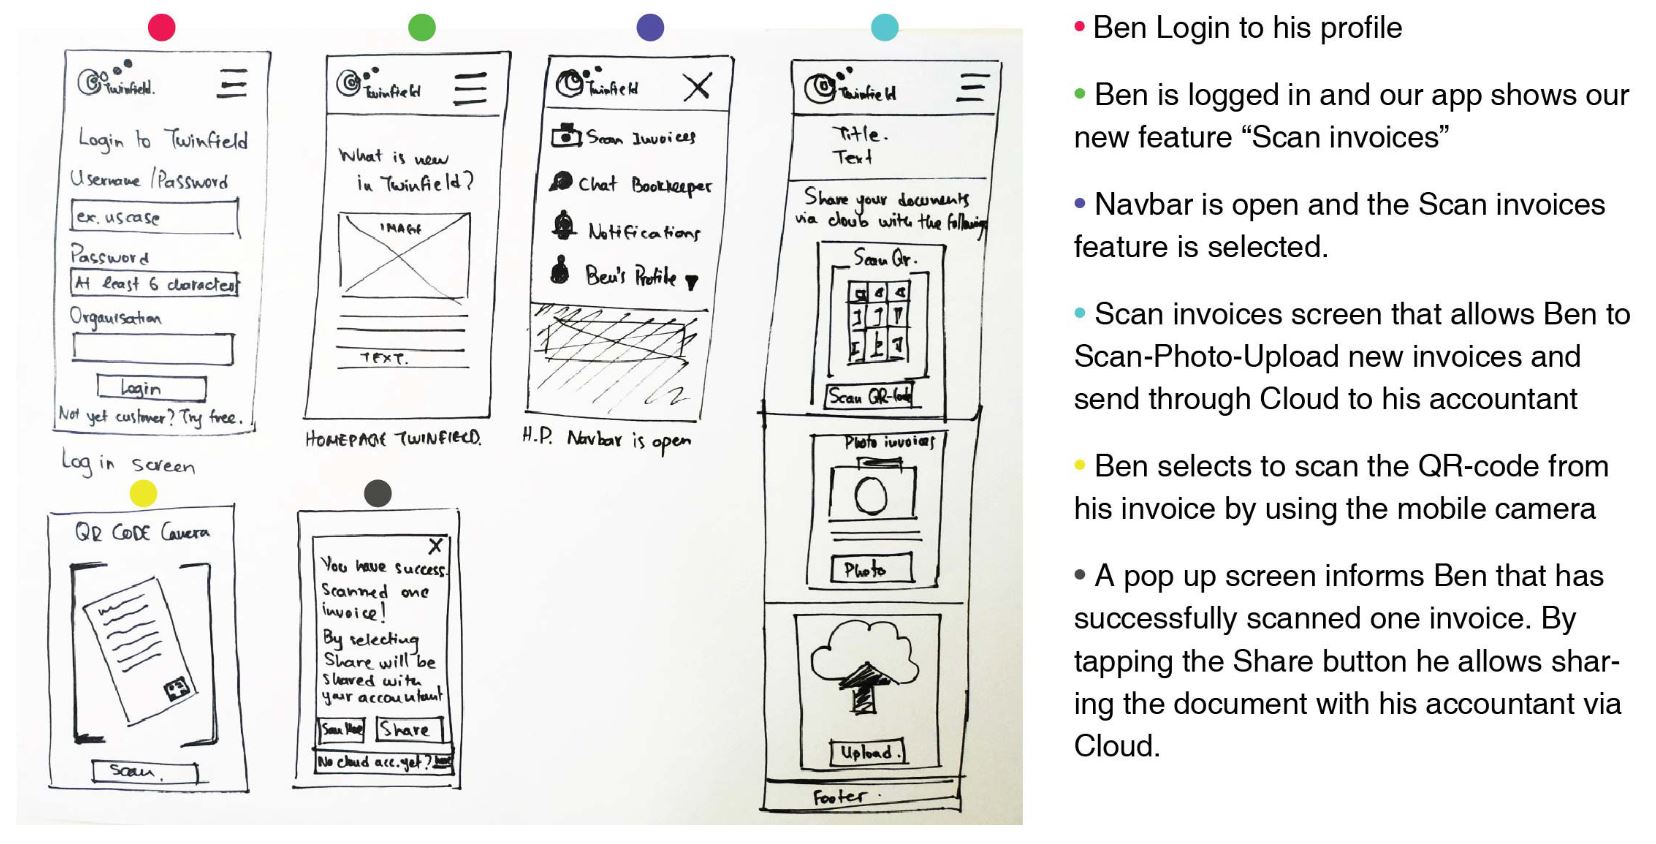 Twinfield.
Login to Twinfield
Username / Password
ex. uscase
Password
At least 6 characters
Organisation
Login
Not yet customer? Try free.
Log in screen
Twinfield
What is new
in Twinfield?
IMAGE
TEXT.
HOMEPAGE TWINFIELD.
Twinfield
X
Scan Invoices
Chat Bookkeeper
Notifications
Ben's Profile
H.P. Navbar is open
Twinfield
Title.
Text
Share your documents
via cloub with the following
Scan Qr.
Scan QR-Code
Photo invoices
Photo
Upload.
Footer.
QR CODE Camera
Scan.
X
You have success.
Scanned one
invoice!
By selecting
Share will be
shared with
your accountant
Scan More
Share
No cloud acc. yet?
• Ben Login to his profile
• Ben is logged in and our app shows our
new feature “Scan invoices”
• Navbar is open and the Scan invoices
feature is selected.
• Scan invoices screen that allows Ben to
Scan-Photo-Upload new invoices and
send through Cloud to his accountant
• Ben selects to scan the QR-code from
his invoice by using the mobile camera
• A pop up screen informs Ben that has
successfully scanned one invoice. By
tapping the Share button he allows shar-
ing the document with his accountant via
Cloud.